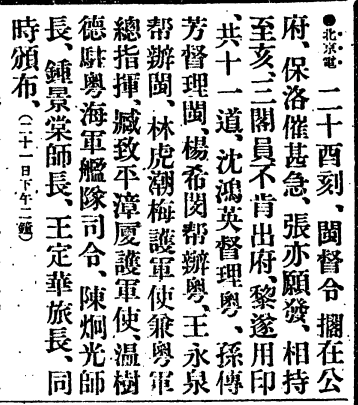 ●北京電 二十酉刻、閩督令、擱在公
府、保洛催甚急、張亦願發、相持
至亥、三閣員不肯出府、黎遂用印
、共十一道、沈鴻英督理粵、孫傳
芳督理閩、楊希閔帮辦粵、王永泉
帮辦閩、林虎潮梅護軍使兼粵軍
總指揮、臧致平漳厦護軍使、温樹
德駐粵海軍艦隊司令、陳炯光師
長、鍾景棠師長、王定華旅長、同
時頒布、(二十一日下午二鐘)